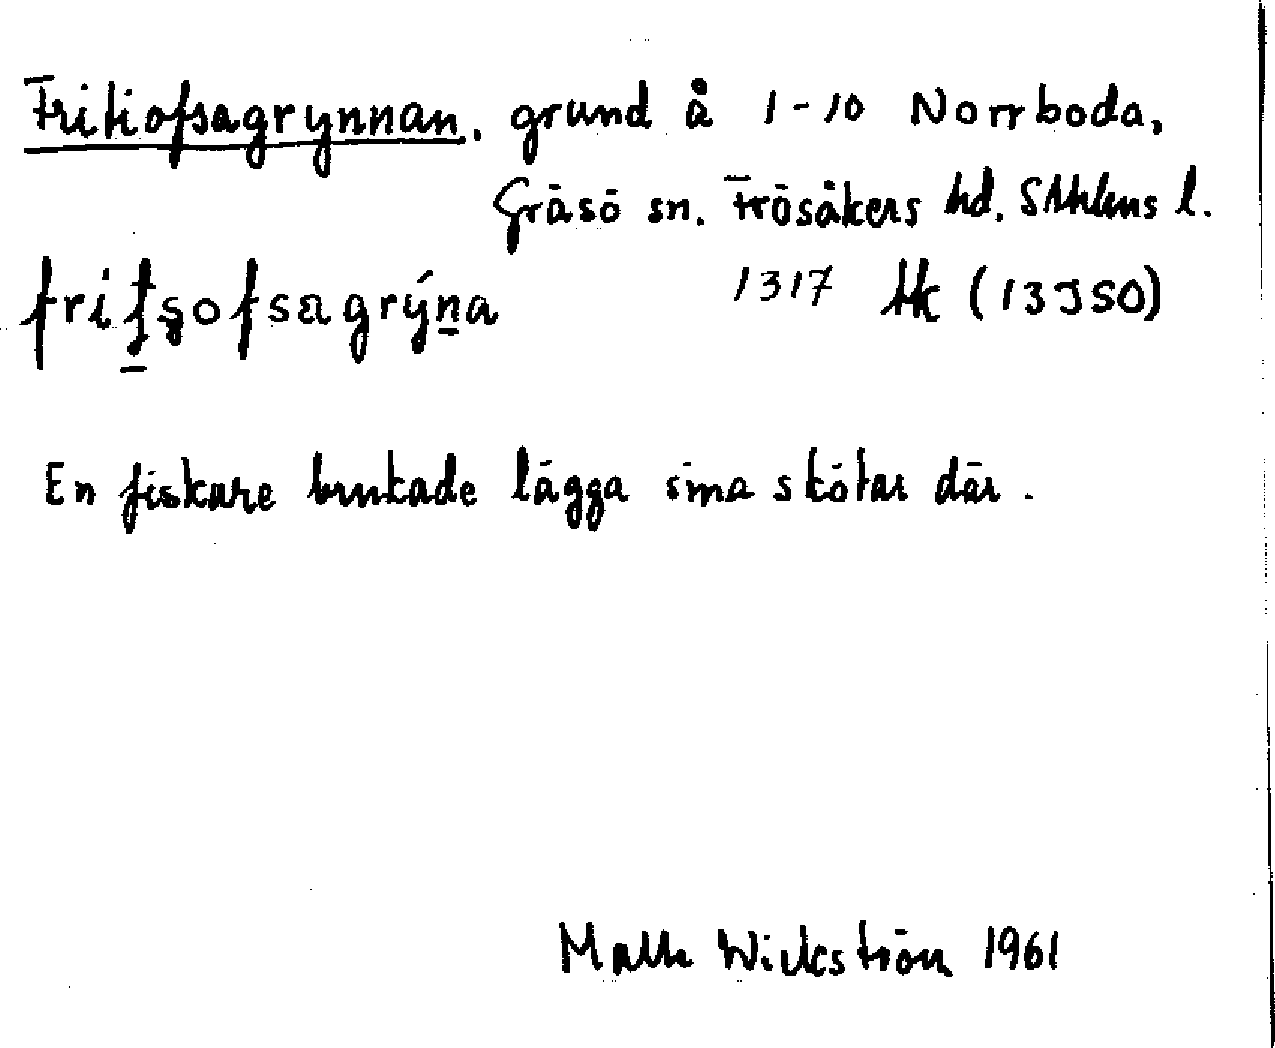 Fritiofsagrynnan, grund å 1-10 Norrboda,
Gräsö sn. Frösåkers hd. Sthlms l.
1317 Hk (13 J SO)
En fiskare brukade lägga sina skötar där.
Wickström 1961